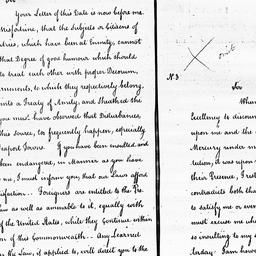 Your Letter of this Date is now before me.
Misfortune, that the Subjects or Citizens of
which have been at Enmity, cannot
that Degree of good humour which should
to treat each other with proper Decorum,
to which they respectively belong.
a Treaty of Amity, and sheathed the
you must have observed that Disturbances,
this source, too frequently happen, especially
Seaport Towns. If you have been insulted, and
been endangered, in Manner as you have
me, I must inform you, that our Laws afford
Foreigners are entitled to the
Law as well as amenable to it, equally with
of the United States, while they Continue within
of this Commonwealth. Any Learned
the Law, if applied to, will direct you to the
omit
N. 3
Sir
When
Excellency to
upon me and the
Mercury under
it was upon
their
contradicts both that
to satisfy me or
must accuse me
so insulting to my
today. I am